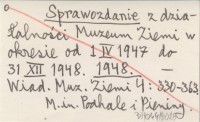 Sprawozdanie z dzia-
łalności Muzeum Ziemi w
okresie od 1 IV 1947 do
31 XII 1948. 1948. —
Wiad. Muz. Ziemi 4: 330-363.
M. in. Podhale i Pieniny